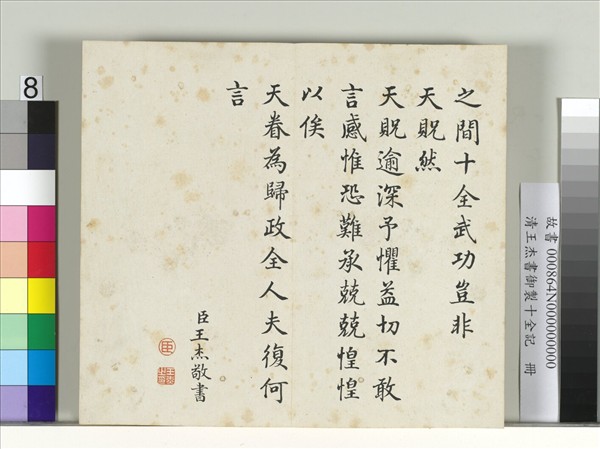 之間十全武功豈非
天貺然
天貺逾深予懼益切不敢
言感惟恐難承兢兢惶惶
以俟
天眷為歸政全人夫復何
言
臣王杰敬書
臣
8
故書000864N000000000
清王杰書御製十全記 冊